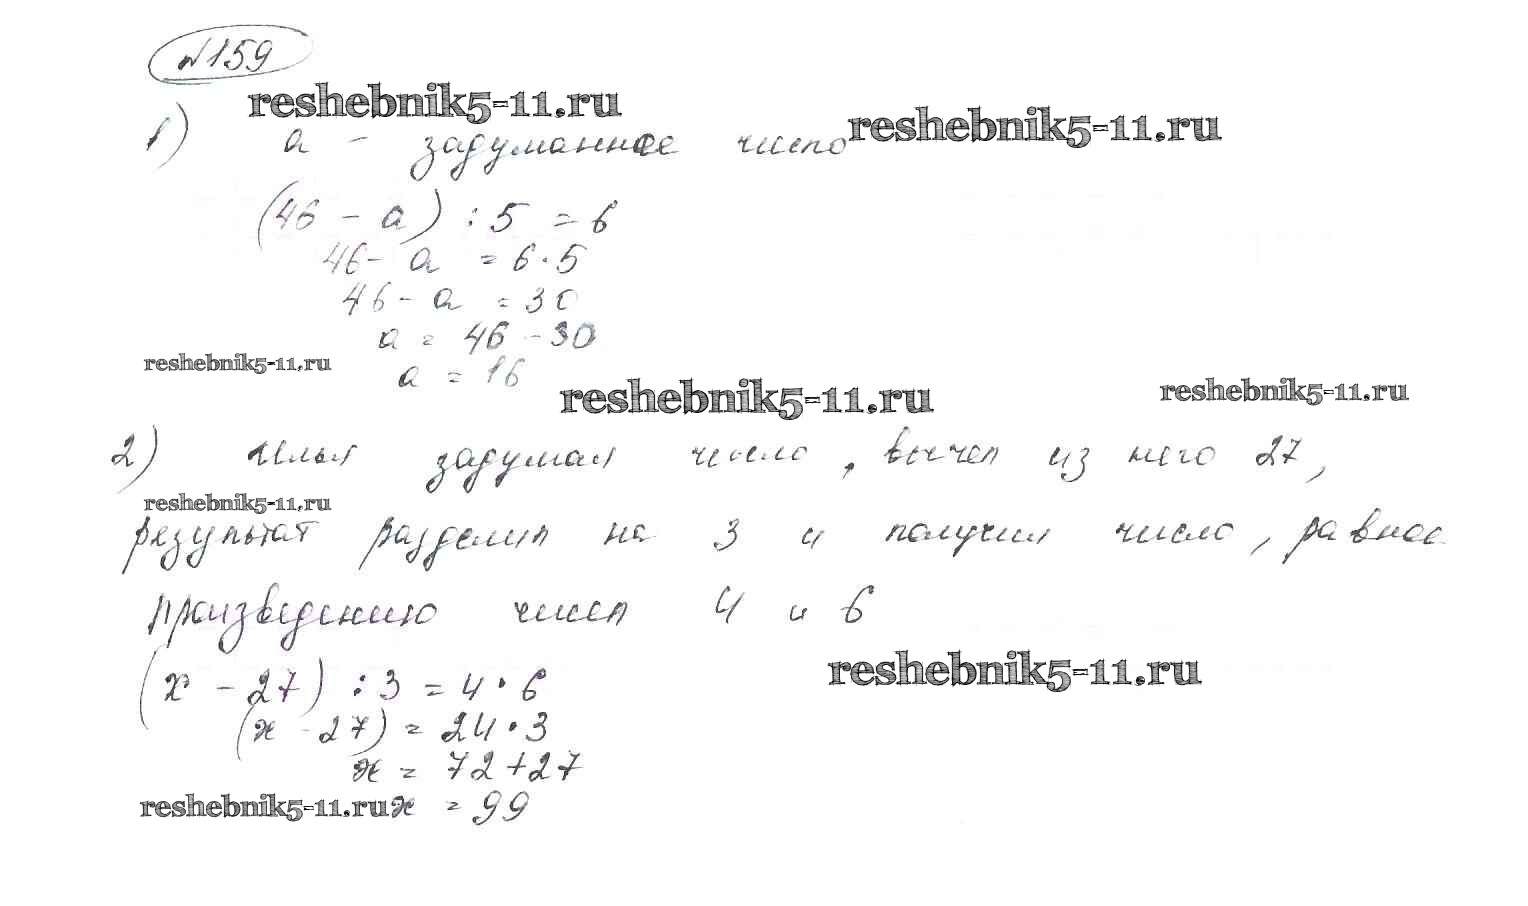 №159
reshebnik5-11.ru
reshebnik5-11.ru
1) а - задуманное число
(46 - а) : 5 = 6
46 - а = 6·5
46 - а = 30
а = 46 - 30
reshebnik5-11.ru
а = 16
reshebnik5-11.ru
reshebnik5-11.ru
2) Илья задумал число, вычел из него 27,
reshebnik5-11.ru
результат разделил на 3 и получил число, равное
произведению чисел 4 и 6
reshebnik5-11.ru
(х - 27) : 3 = 4·6
(х - 27) = 24·3
х = 72+27
reshebnik5-11.ru
х = 99